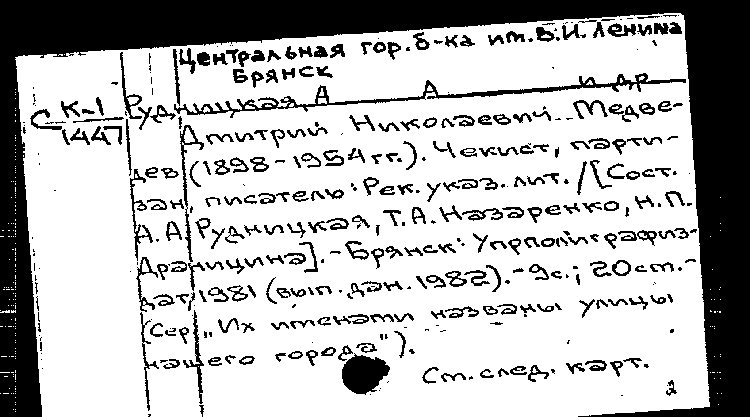 Центральная гор. б-ка им. В.И. Ленина
Брянск
С К-1 Рудницкая, А А и др
1447 Дмитрий Николаевич Медве-
дев (1898-1954 гг.). Чекист, парти-
зан, писатель: Рек. указ. лит. / [Сост.
А.А. Рудницкая, Т.А. Назаренко, Н.П.
Драницина]. - Брянск: Упрполиграфиз-
дат, 1981 (вып. дан. 1982). - 9с.; 20 см. -
(Сер. „Их именами названы улицы
нашего города").
См. след. карт.
2